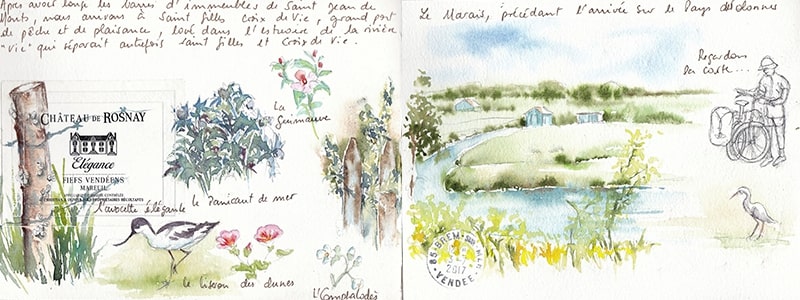 Après avoir longé les barres d'immeubles de Saint Jean de
Monts, nous arrivons à Saint Gilles Croix de Vie, grand port
de pêche et de plaisance, lové dans l'estuaire de la rivière
"Vie" qui séparait autrefois Saint Gilles et Croix de Vie.
La
Guimauve
CHÂTEAU DE ROSNAY
Elégance
FIEFS VENDÉENS
MAREUIL
L'avocette élégante
le panicaut de mer
le liseron des dunes
L'Omphalodès
Le Marais, précédant l'arrivée sur le Pays des olonnes
Regardons
la carte...
85 BREM SUR MER
2017
VENDEE